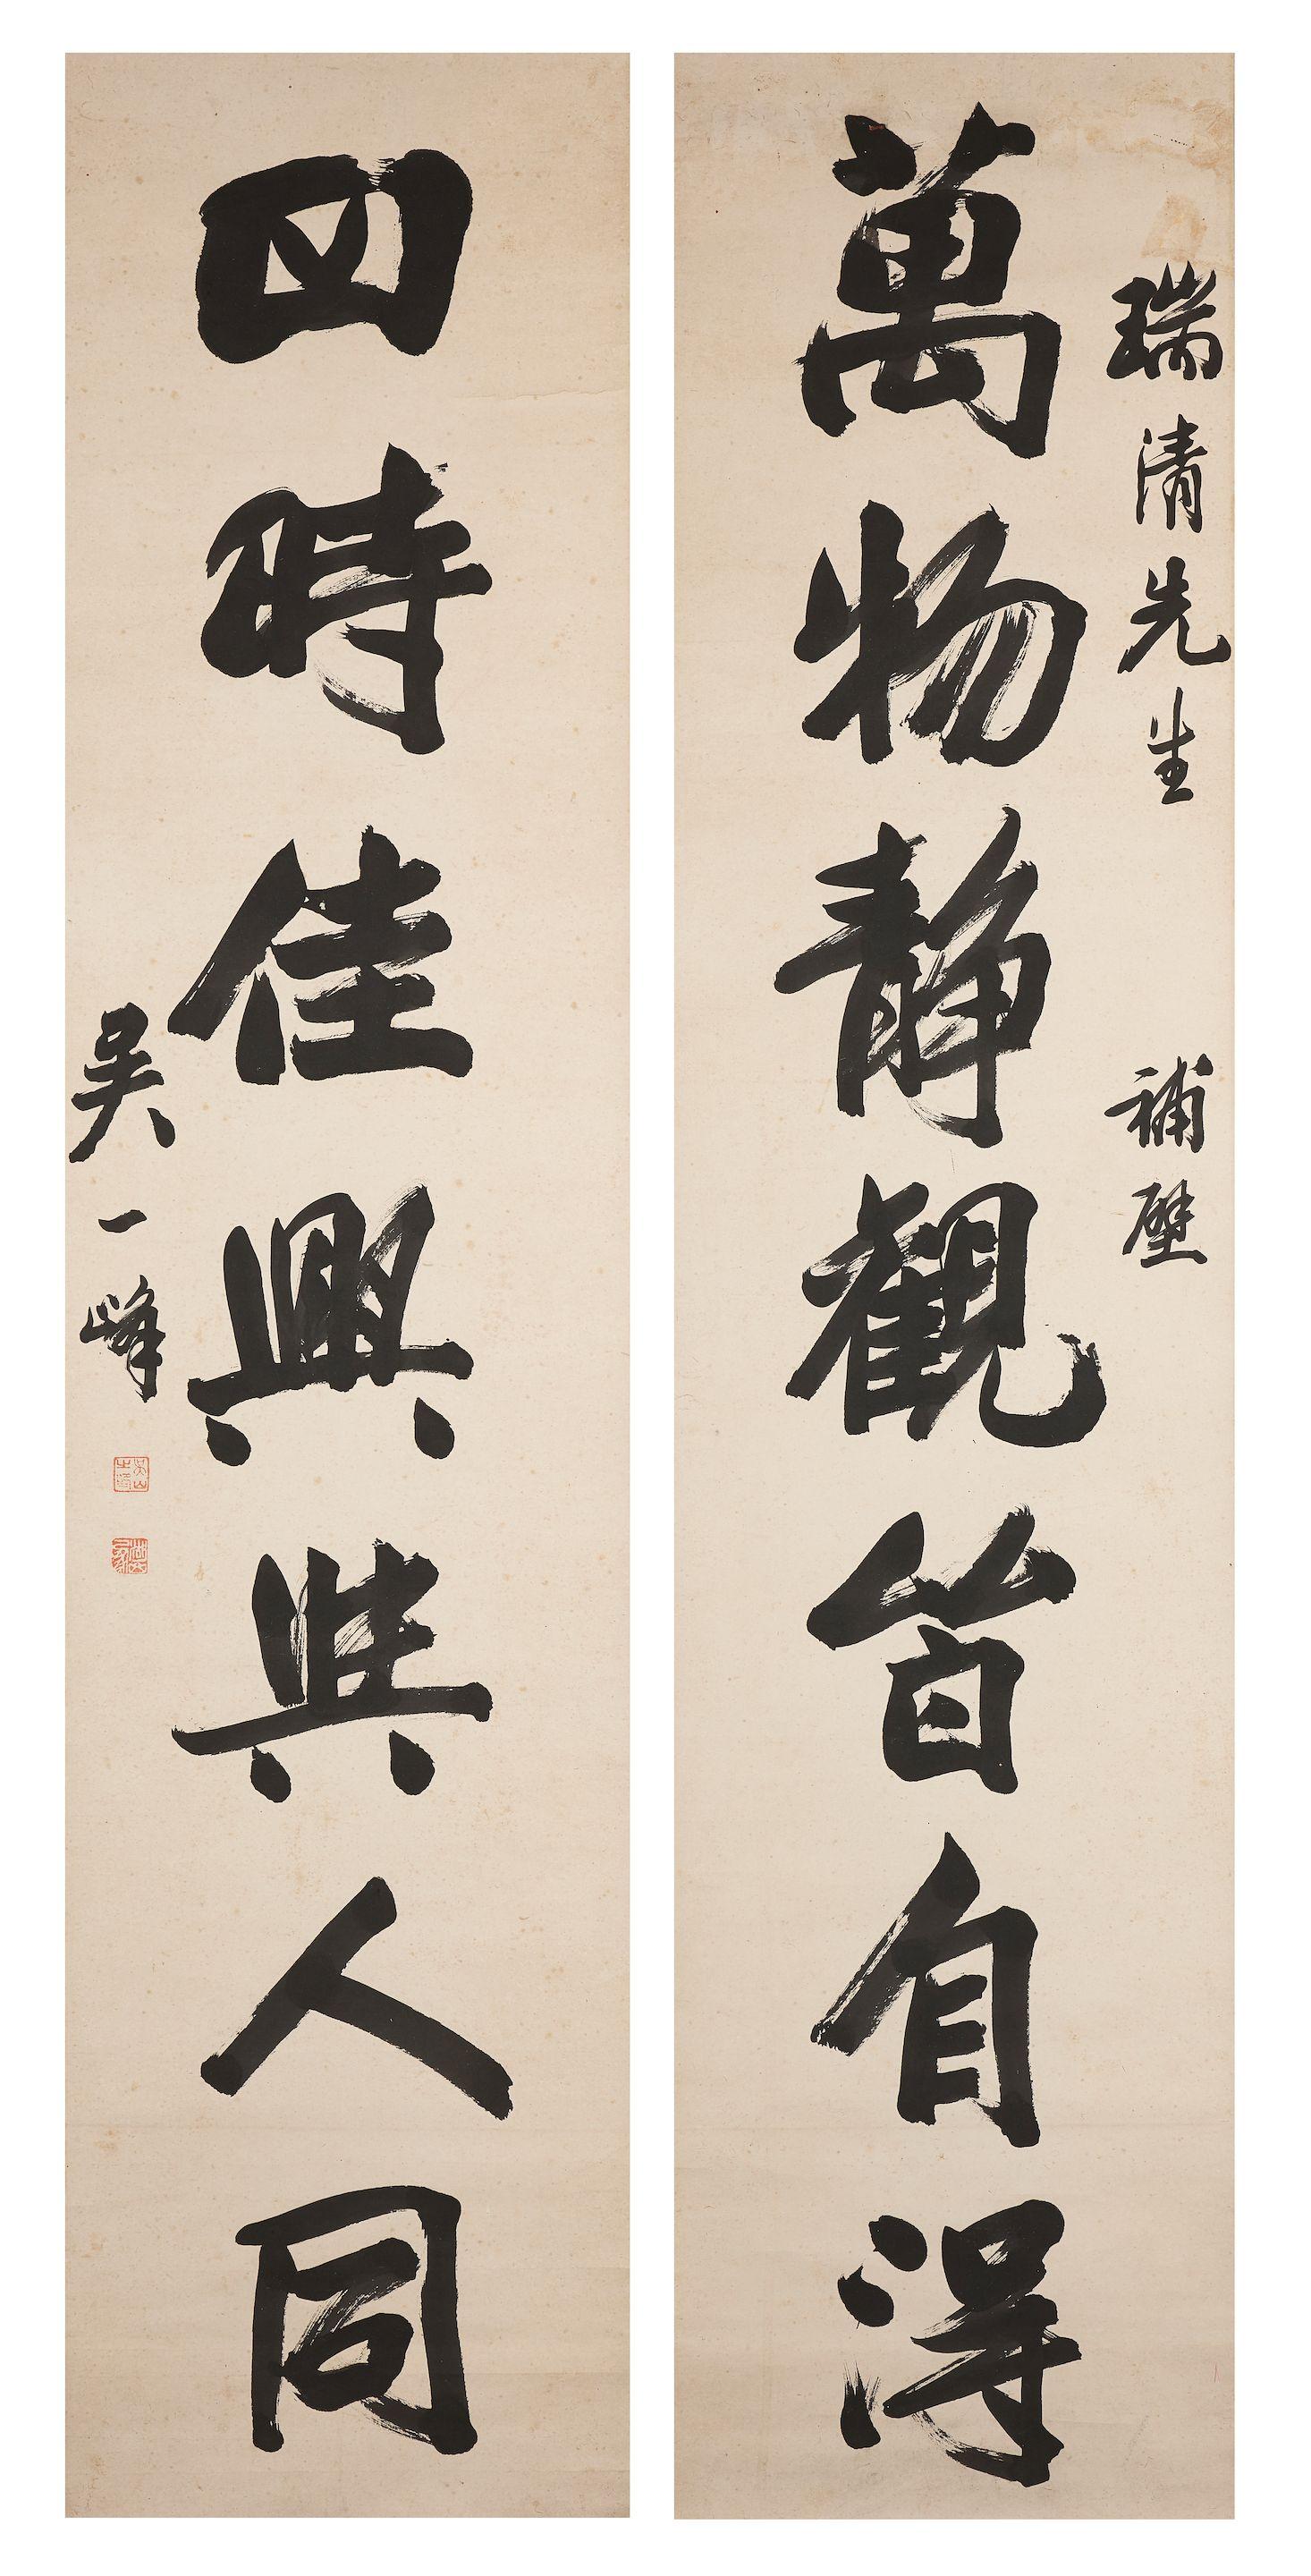 瑞清先生 補壁
萬物静觀皆自得
四時佳興與人同
吳一峰